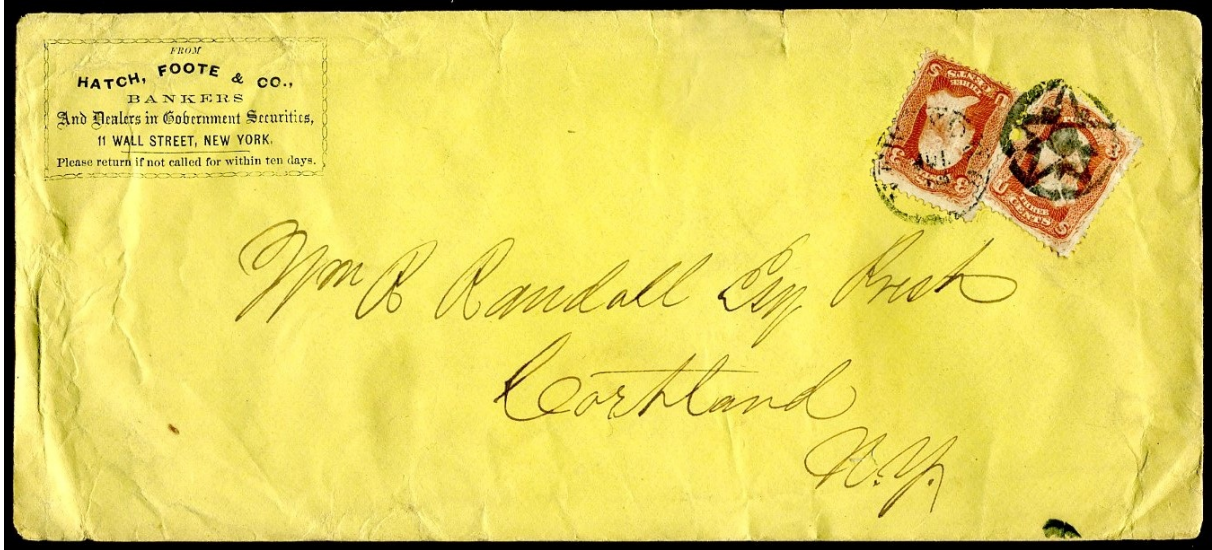 FROM
HATCH, FOOTE & CO.,
BANKERS
And Dealers in Government Securities,
11 WALL STREET, NEW YORK.
Please return if not called for within ten days.
Wm R Randall Esq Prest
Cortland
N.Y.
THREE
CENTS